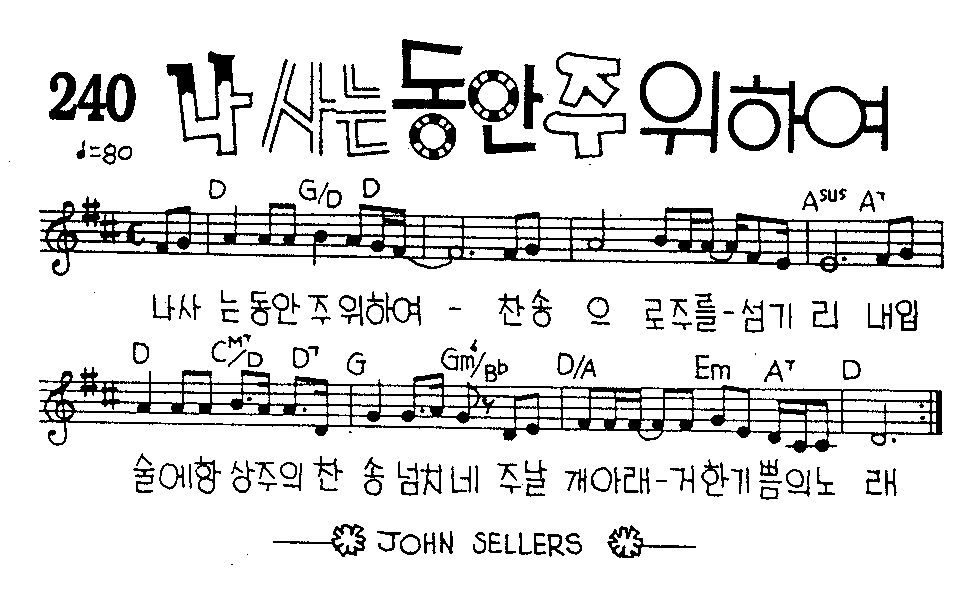 240 나 사는 동안 주 위하여
♩=80
D G/D D Asus A7
나사 는동안 주 위하여 - 찬송 으 로주를-섬기 리 내입
D CM7/D D7 G Gm6/Bb D/A Em A7 D
술에항 상주의 찬 송 넘치네 주날 개아래-거한기쁨의노 래
JOHN SELLERS